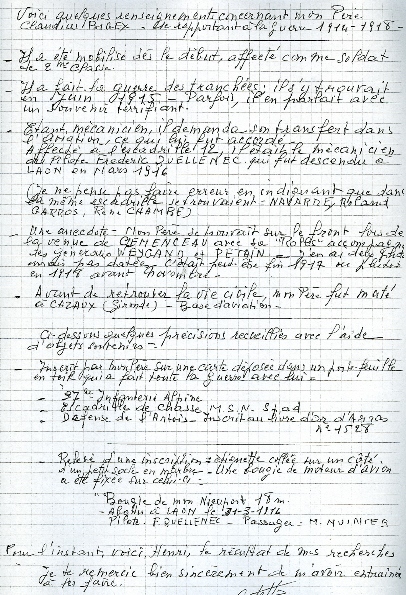 Voici quelques renseignements concernant mon Père
Claudius - se rapportant à la guerre 1914-1918 -
- Il a été mobilisé dès le début, affecté comme soldat
de 2ème classe.
- Il a fait la guerre des tranchées, il s'y trouvait
en Juin 1915 - Parfois, il en parlait avec
un souvenir terrifiant.
- Etant mécanicien, il demanda son transfert dans
l'AVIATION, ce qui lui fut accordé -
Affecté à l'Escadrille 12, il était le mécanicien
du Pilote Frédéric QUELLENEC qui fut descendu à
LAON en Mars 1916
(Je ne pense pas faire erreur en indiquant que dans
la même escadrille se trouvaient - NAVARRE, Roland
GARROS, René CHAMBE)
- Une anecdote - Mon Père se trouvait sur le front lors de
la venue de CLEMENCEAU avec la "Rolls" accompagné
des généraux WEYGAND et PETAIN -
mais pas datée. C'était peut-être fin 1917 ou plutôt
en 1918 avant novembre -
- Avant de retrouver la vie civile, mon Père fut muté
à CAZAUX (Gironde) - Base d'aviation -
Ci-dessous quelques précisions recueillies avec l'aide
d'objets souvenirs -
- Inscrit par mon Père sur une carte déposée dans un porte-feuille
en toile qui a fait toute la guerre avec lui -
- Infanterie Alpine
- Escadrille de Chasse M.S.N. Spad
- Défense de l'Artois - Inscrit au livre d'or d'Arras
n° 1528
Relevé d'une inscription - étiquette collée sur un côté
d'un petit socle en marbre - Une bougie de moteur d'avion
a été fixée sur celui-ci -
"Bougie de mon Nieuport 18 m.
à LAON le 31-3-1916
Pilote : F. QUELLENEC - Passager : M.
Pour l'instant, voici, Henri, le résultat de mes recherches
Je te remercie bien sincèrement de m'avoir entraîné
à les faire.